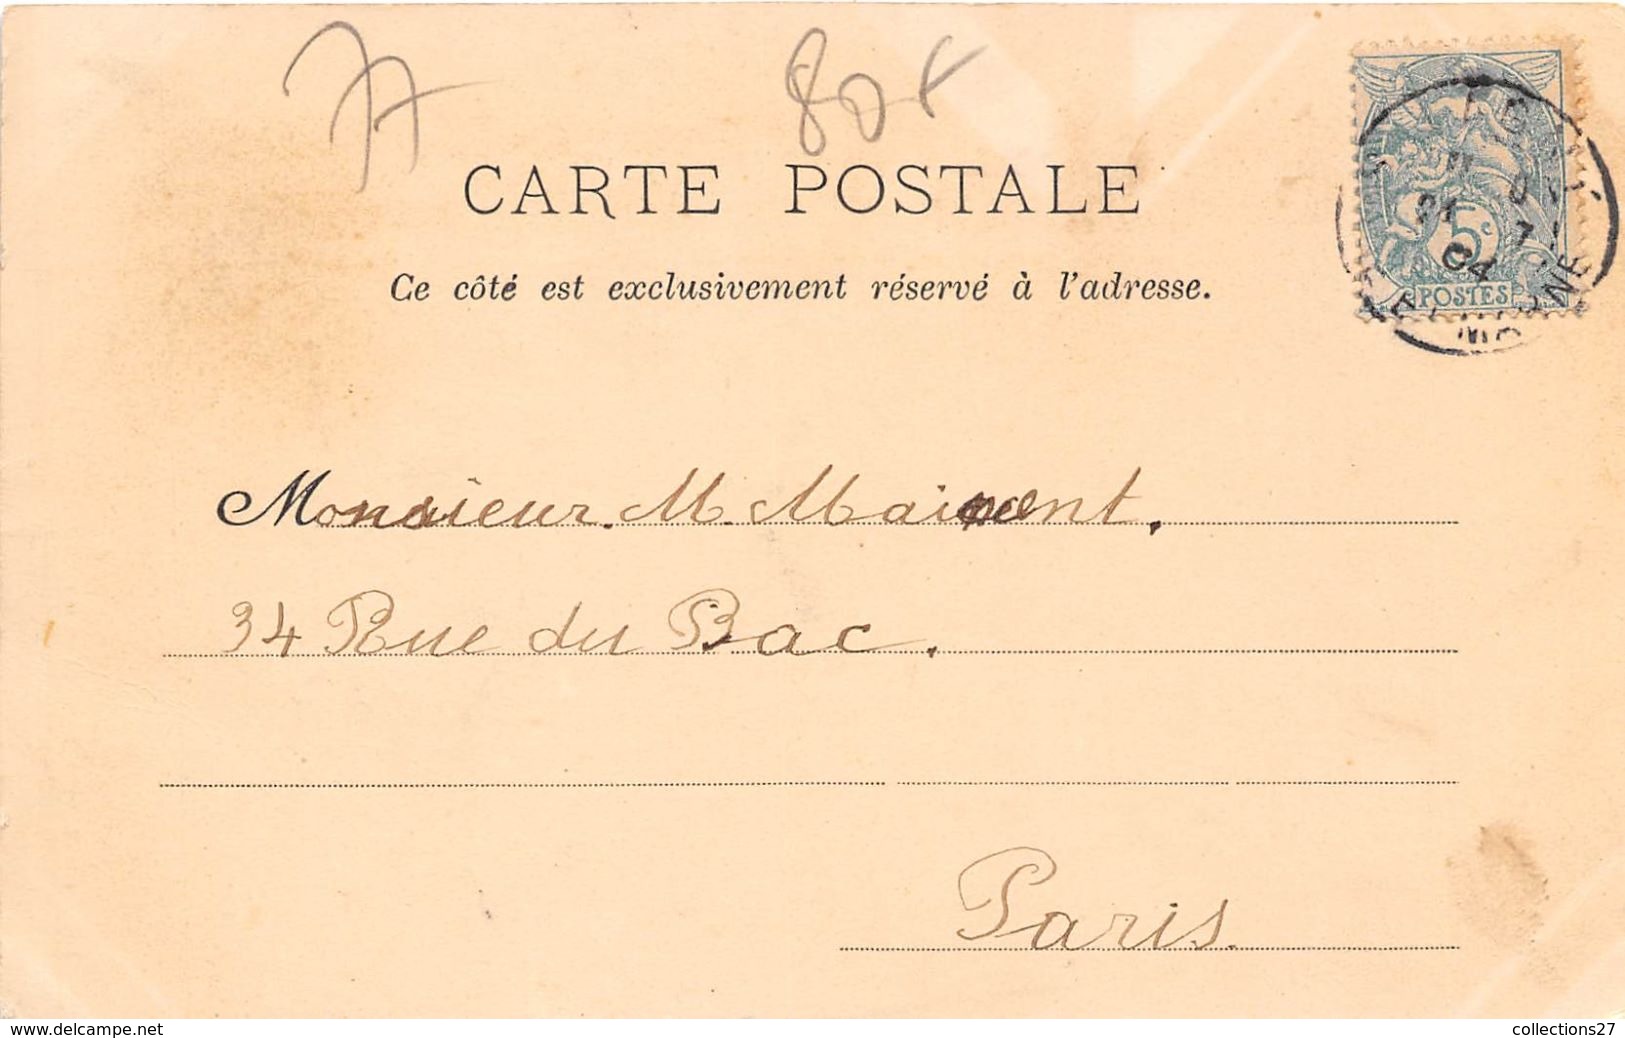 77 80x
CARTE POSTALE
Ce côté est exclusivement réservé à l'adresse.
5c
04
POSTES
Monsieur. M. Mairent.
34 Rue du Bac.
Paris.
www.delcampe.net
collections27